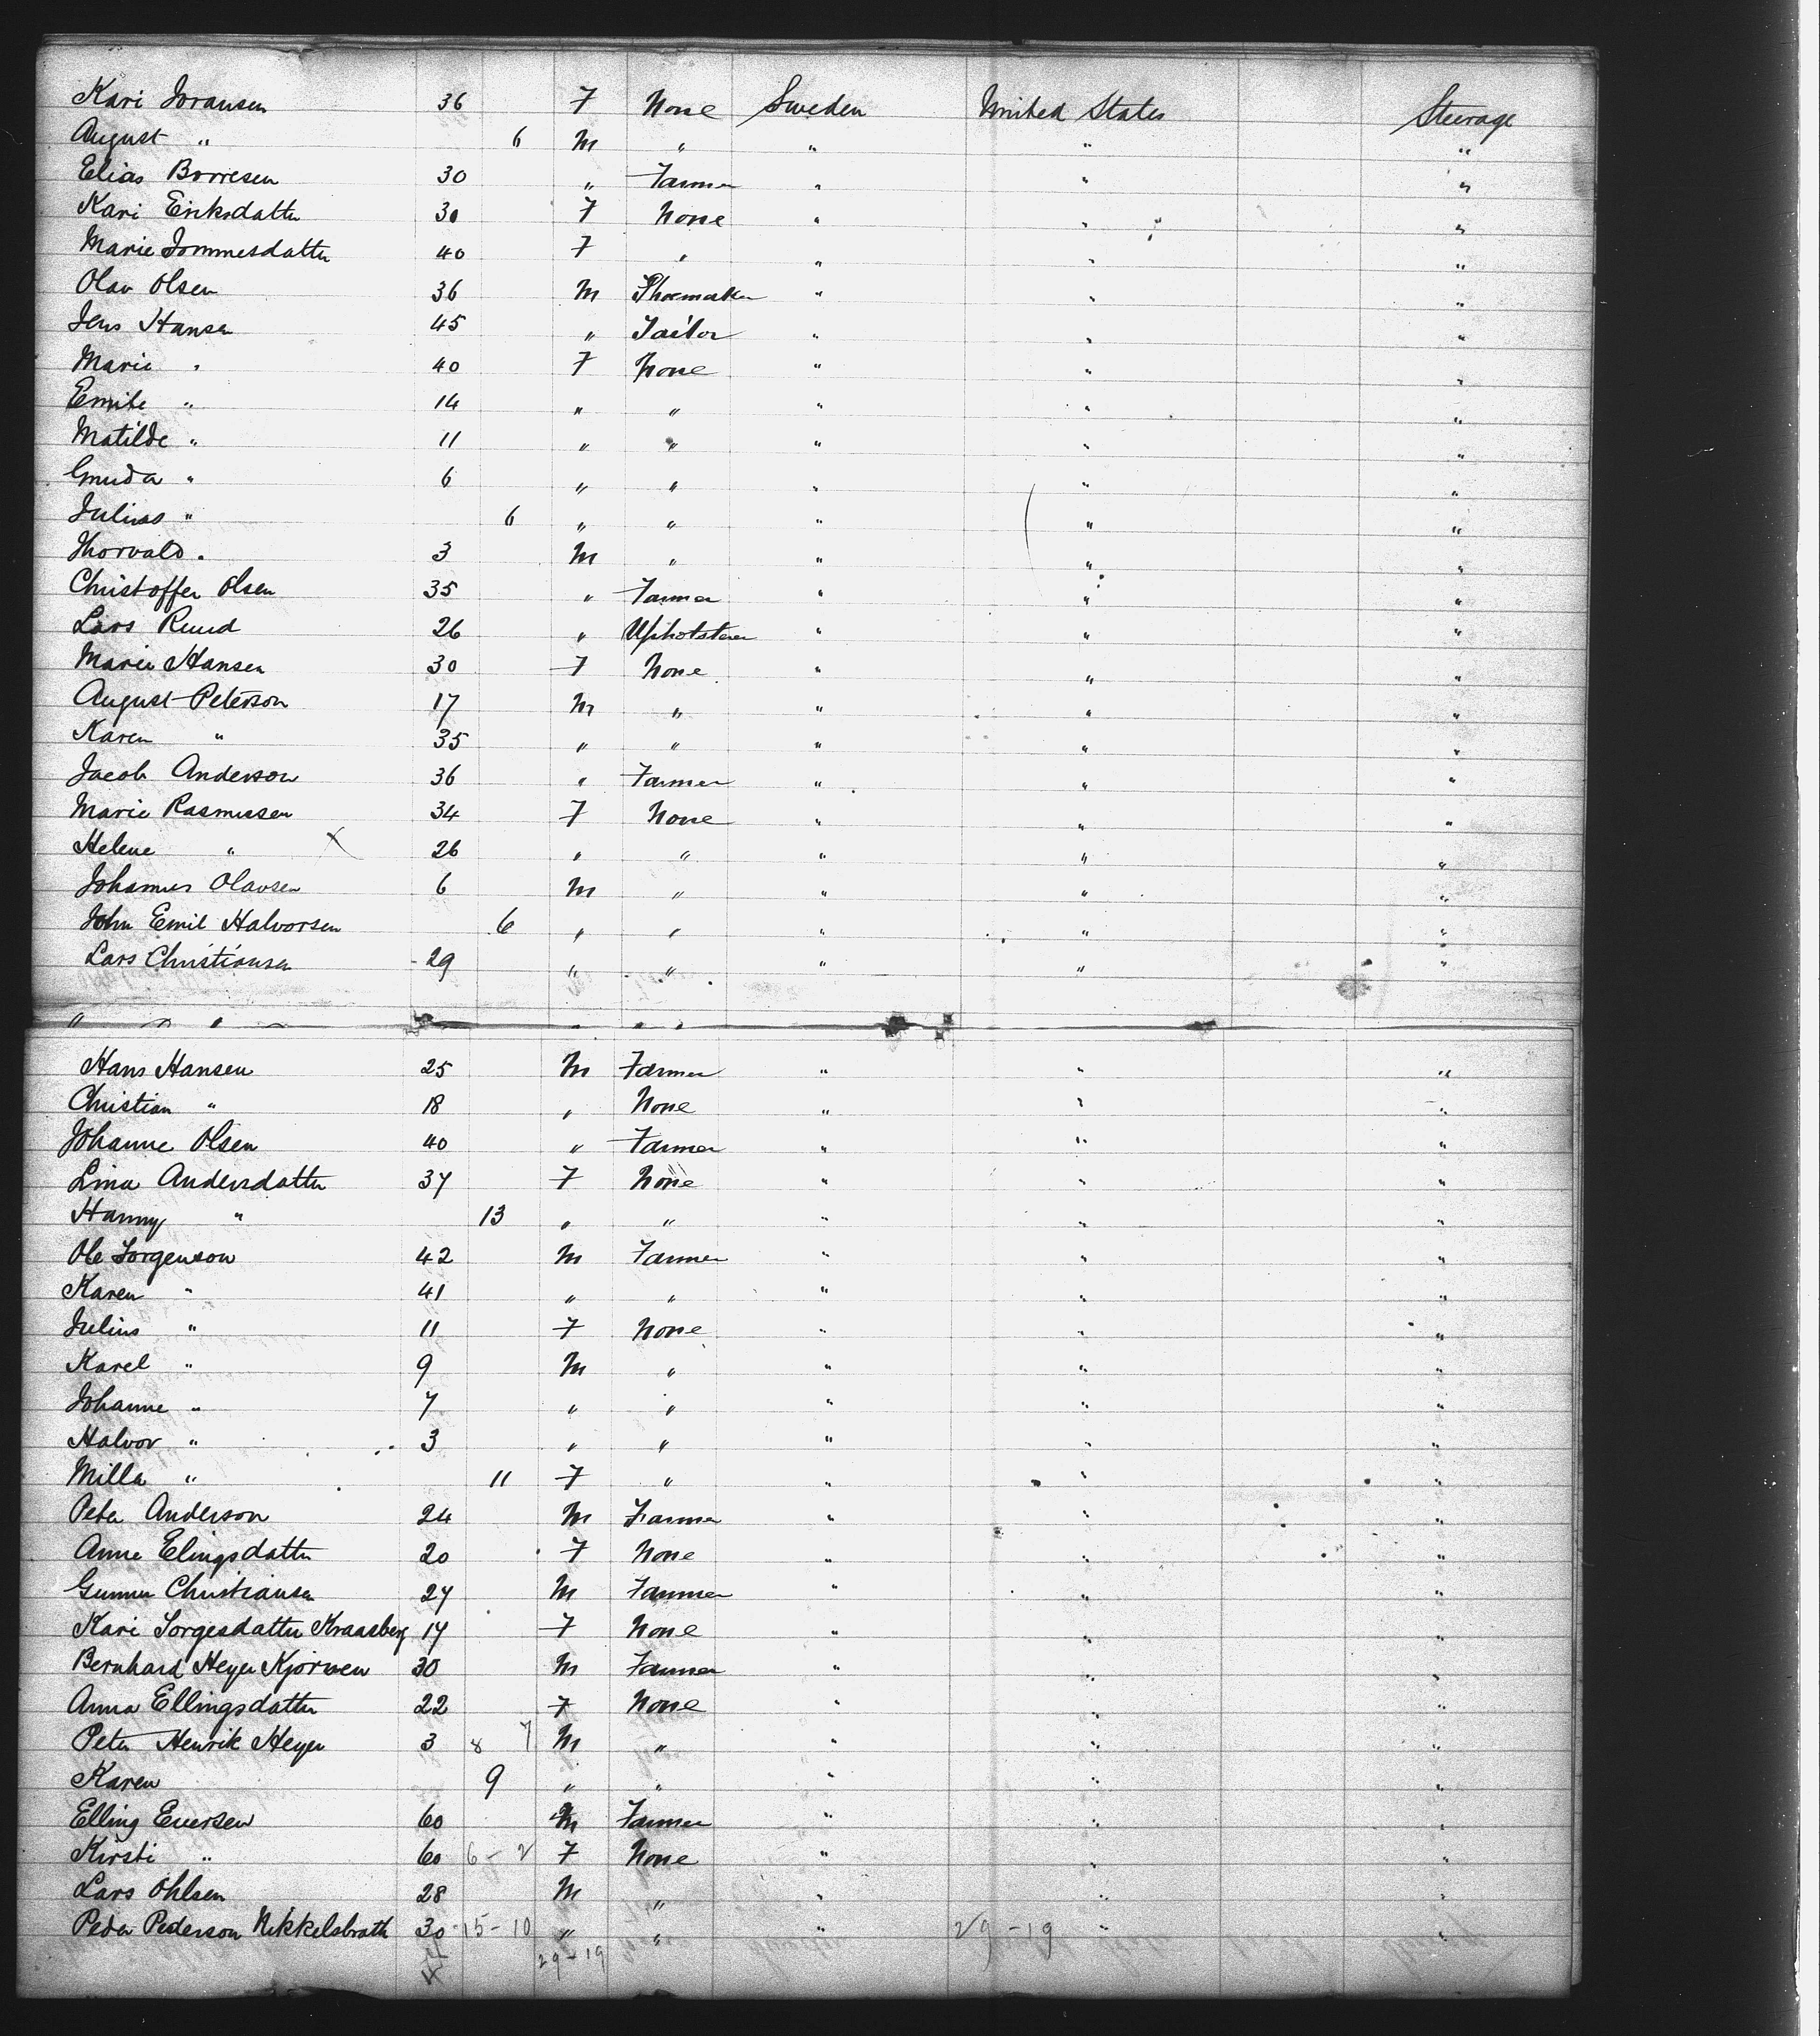 Kari Joransen 36 F None Sweden United States Steerage
August " 6 M " " " "
Elias Borresen 30 " Farmer " " "
Kari Eriksdatter 30 F None " " "
Marie Tommesdatter 40 F " " " "
Olav Olsen 36 M Shoemaker " " "
Jens Hansen 45 " Tailor " " "
Marie " 40 F None " " "
Emile " 14 " " " " "
Matilde " 11 " " " " "
Gmuda " 6 " " " " "
Julius " 6 " " " " "
Thorvald " 3 M " " " "
Christoffer Olsen 35 " Farmer " " "
Lars Ruud 26 " Upholsterer " " "
Marie Hansen 30 F None " " "
August Peterson 17 M " " " "
Karen " 35 " " " " "
Jacob Anderson 36 " Farmer " " "
Marie Rasmussen 34 F None " " "
Helene " X 26 " " " " "
Johannes Olavsen 6 M " " " "
John Emil Halvorsen 6 " " " " "
Lars Christiansen 29 " " " " "
Hans Hansen 25 M Farmer " " "
Christian " 18 " None " " "
Johanne Olsen 40 " Farmer " " "
Lina Andersdatter 37 F None " " "
Hanny " 13 " " " " "
Ole Jorgenson 42 M Farmer " " "
Karen " 41 " " " " "
Julius " 11 F None " " "
Karel " 9 M " " " "
Johanne " 7 " " " " "
Halvor " 3 " " " " "
Milla " 11 F " " " "
Peter Anderson 24 M Farmer " " "
Anne Elingsdatter 20 F None " " "
Gunner Christiansen 27 M Farmer " " "
Kari Torgesdatter Kraasberg 17 F None " " "
Bernhard Heyer Kjorven 30 M Farmer " " "
Anna Ellingsdatter 22 F None " " "
Peter Henrik Heyer 3 8 7 M " " " "
Karen 9 " " " " "
Elling Eversen 60 M Farmer " " "
Kirsti " 60 6 - 2 F None " " "
Lars Ohlsen 28 M " " " "
Peder Pederson Nikkelsbrath 30 - 15 - 10 " " " 29 - 19 " "
29 - 19